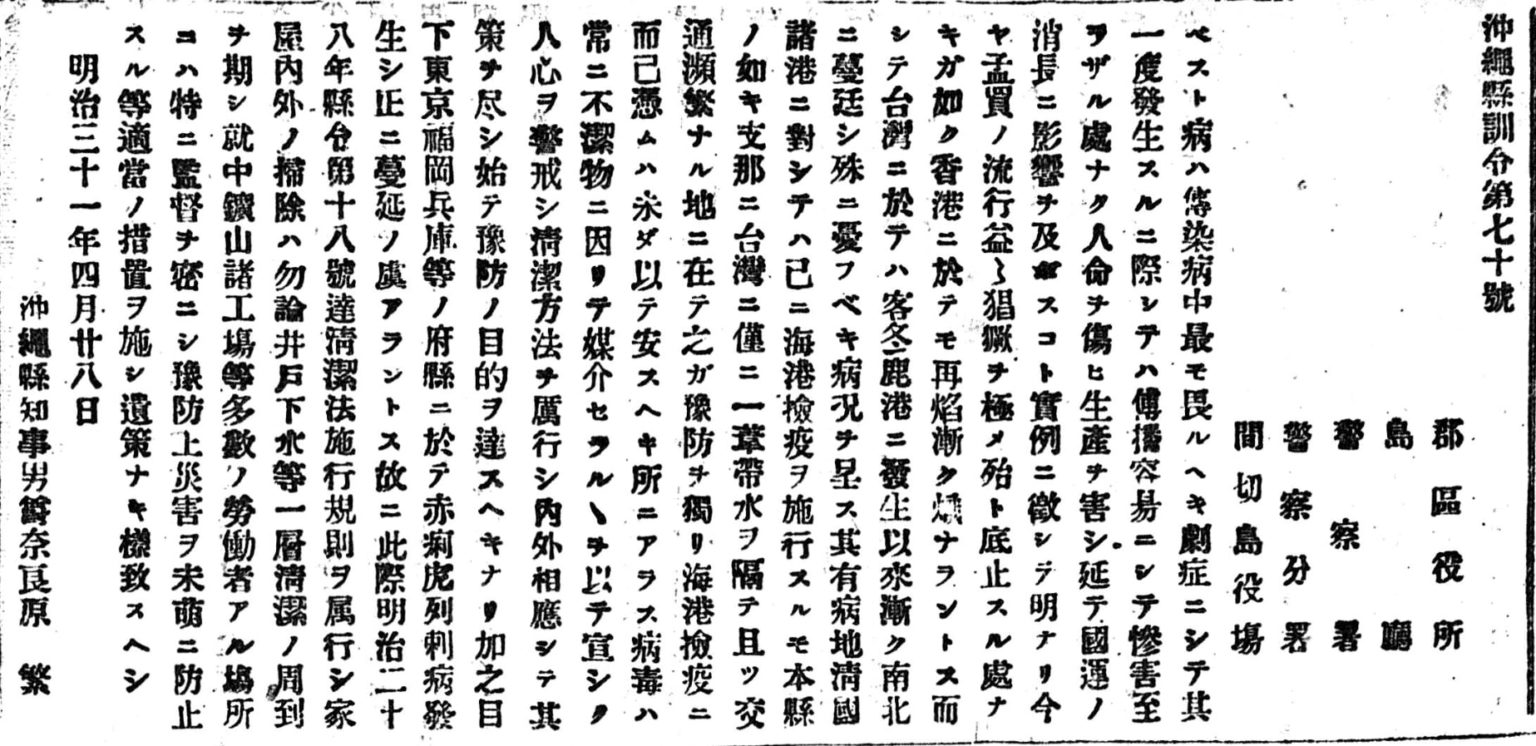 沖繩縣訓令第七十號
郡區役所
島廳
警察署
警察分署
間切島役塲
ペスト病ハ傳染病中最モ畏ルヘキ劇症ニシテ其
一度發生スルニ際シテハ傳播容易ニシテ慘害至
ヲザル處ナク人命ヲ傷ヒ生產ヲ害シ延テ國運ノ
消長ニ影響ヲ及ホスコト實例ニ徵シテ明ナリ今
ヤ孟買ノ流行益〻猖獗ヲ極メ殆ト底止スル處ナ
キガ如ク香港ニ於テモ再焰漸ク熾ナラントス而
シテ台灣ニ於テハ客冬鹿港ニ發生以來漸ク南北
ニ蔓廷シ殊ニ憂フベキ病况ヲ呈ス其有病地淸國
諸港ニ對シテハ已ニ海港撿疫ヲ施行スルモ本縣
ノ如キ支那ニ台灣ニ僅ニ一葦帶水ヲ隔テ且ツ交
通瀕繁ナル地ニ在テ之ガ豫防ヲ獨リ海港撿疫ニ
而已憑ムハ未ダ以テ安スヘキ所ニアラス病毒ハ
常ニ不潔物ニ因リテ媒介セラルヽヲ以テ宣シク
人心ヲ警戒シ淸潔方法ヲ厲行シ內外相應シテ其
策ヲ尽シ始テ豫防ノ目的ヲ達スヘキナリ加之目
下東京福岡兵庫等ノ府縣ニ於テ赤痢虎列刺病發
生シ正ニ蔓延ノ虞アラントス故ニ此際明治二十
八年縣令第十八號達淸潔法施行規則ヲ属行シ家
屋內外ノ掃除ハ勿論井戶下水等一層淸潔ノ周到
ヲ期シ就中鑛山諸工塲等多數ノ勞働者アル塲所
ニハ特ニ監督ヲ密ニシ豫防上災害ヲ未萌ニ防止
スル等適當ノ措置ヲ施シ遺策ナキ樣致スヘシ
明治三十一年四月廿八日
沖繩縣知事男爵奈良原 繁